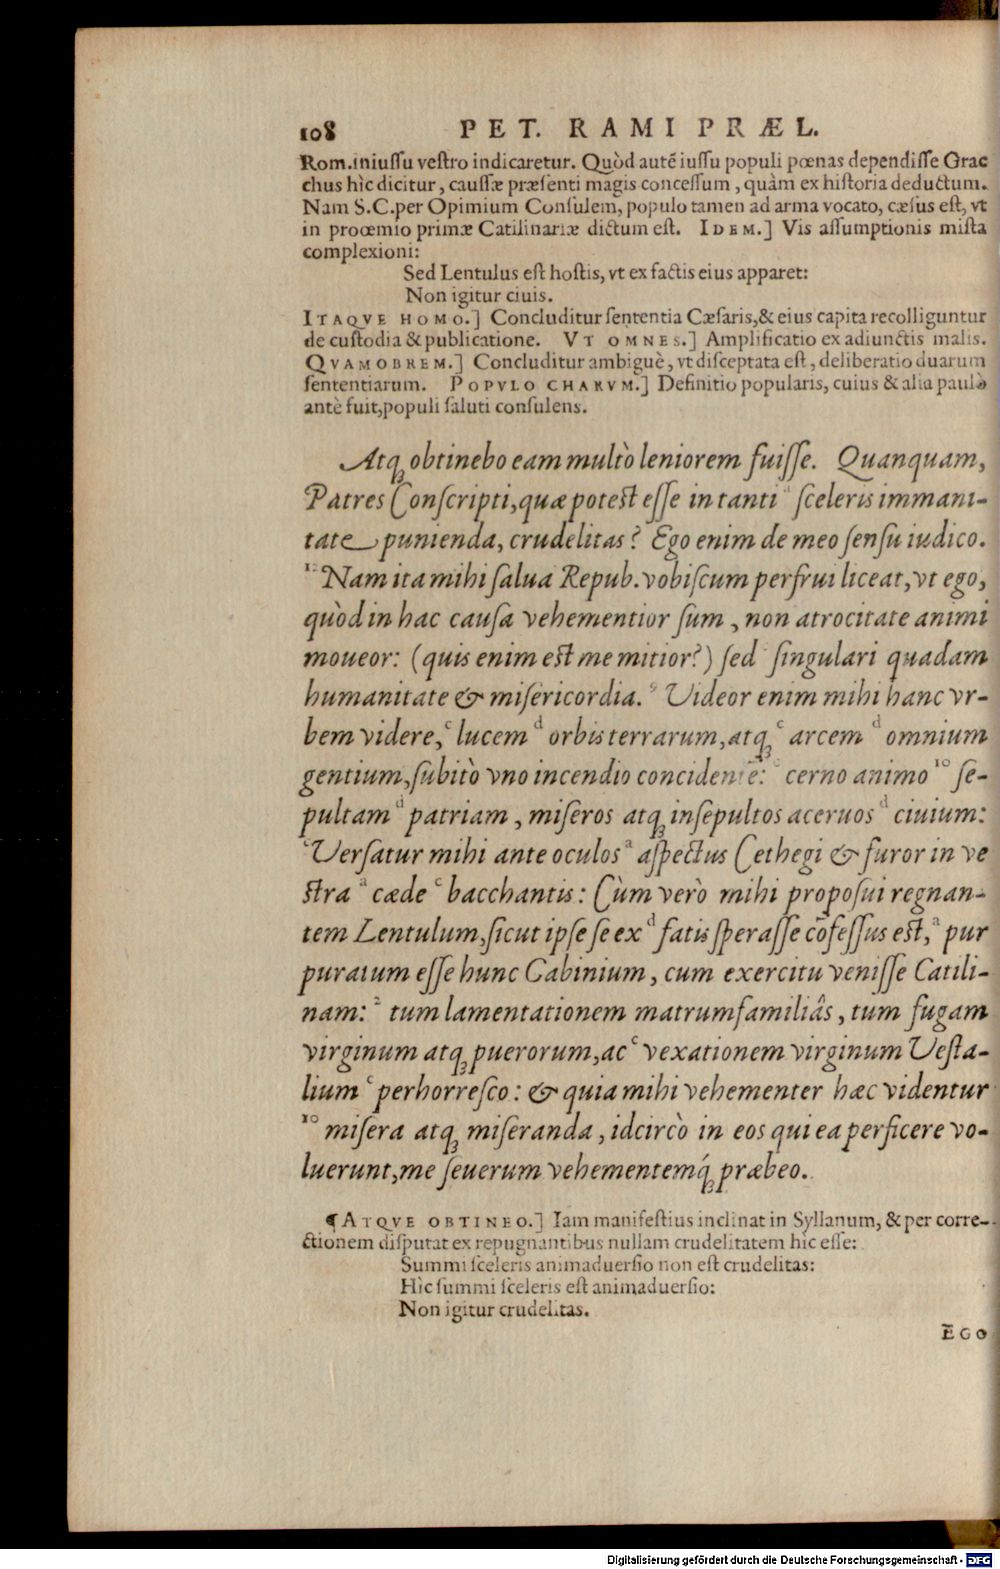 108 PET. RAMI PRÆL.
Rom.iniussu vestro indicaretur. Quòd autē iussu populi pœnas dependisse Grac
chus hìc dicitur, caussæ præsenti magis concessum, quàm ex historia deductum.
Nam S.C.per Opimium Consulem, populo tamen ad arma vocato, cæsus est, vt
in proœmio primæ Catilinariæ dictum est. IDEM.] Vis assumptionis mista
complexioni:
Sed Lentulus est hostis, vt ex factis eius apparet:
Non igitur ciuis.
ITAQVE HOMO.] Concluditur sententia Cæsaris,& eius capita recolliguntur
de custodia & publicatione. VT OMNES.] Amplificatio ex adiunctis malis.
QVAMOBREM.] Concluditur ambiguè, vt disceptata est, deliberatio duarum
sententiarum. POPVLO CHARVM.] Definitio popularis, cuius & alia paulò
antè fuit,populi saluti consulens.
Atq; obtinebo eam multò leniorem fuisse. Quanquam,
Patres Conscripti,quæ potest esse in tanti ᵃ sceleris immani-
tate punienda, crudelitas? Ego enim de meo sensu iudico.
¹² Nam ita mihi salua Repub. vobiscum perfrui liceat, vt ego,
quòd in hac causa vehementior sum, non atrocitate animi
moueor: (quis enim est me mitior?) sed singulari quadam
humanitate & misericordia. ⁹ Uideor enim mihi hanc vr-
bem videre, ᶜ lucem ᵈ orbis terrarum, atq; ᶜ arcem ᵈ omnium
gentium, subitò vno incendio concidentē: ᶜ cerno animo ¹⁰ se-
pultam ᵈ patriam, miseros atq; insepultos aceruos ᵈ ciuium:
ᶜ Uersatur mihi ante oculos ᵃ aspectus Cethegi & furor in ve
stra ᵃ cæde ᶜ bacchantis: Cùm verò mihi proposui regnan-
tem Lentulum, sicut ipse se ex ᵈ fatis sperasse cōfessus est, ᵃ pur
puratum esse hunc Gabinium, cum exercitu venisse Catili-
nam: ² tum lamentationem matrumfamiliâs, tum fugam
virginum atq; puerorum, ac ᶜ vexationem virginum Uesta-
lium ᶜ perhorresco: & quia mihi vehementer hæc videntur
¹⁰ misera atq; miseranda, idcircò in eos qui ea perficere vo-
luerunt, me seuerum vehementemq́; præbeo.
¶ATQVE OBTINEO.] Iam manifestius inclinat in Syllanum, & per corre-
ctionem disputat ex repugnantibus nullam crudelitatem hìc esse:
Summi sceleris animaduersio non est crudelitas:
Hìc summi sceleris est animaduersio:
Non igitur crudelitas.
EGO
Digitalisierung gefördert durch die Deutsche Forschungsgemeinschaft - DFG